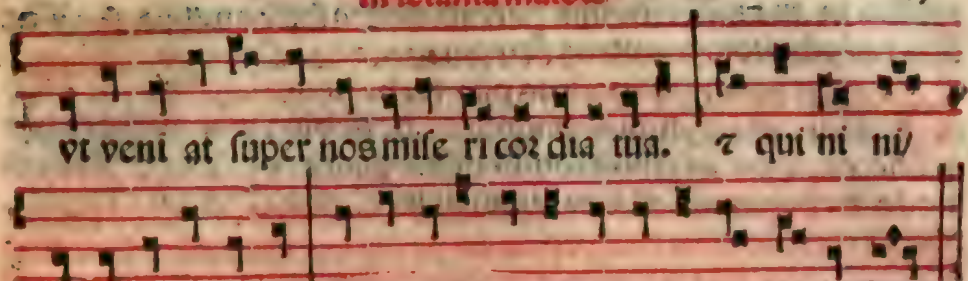 vt veni at ſuper nos miſe ri coꝛ dia tua. ⁊ qui ni ni/